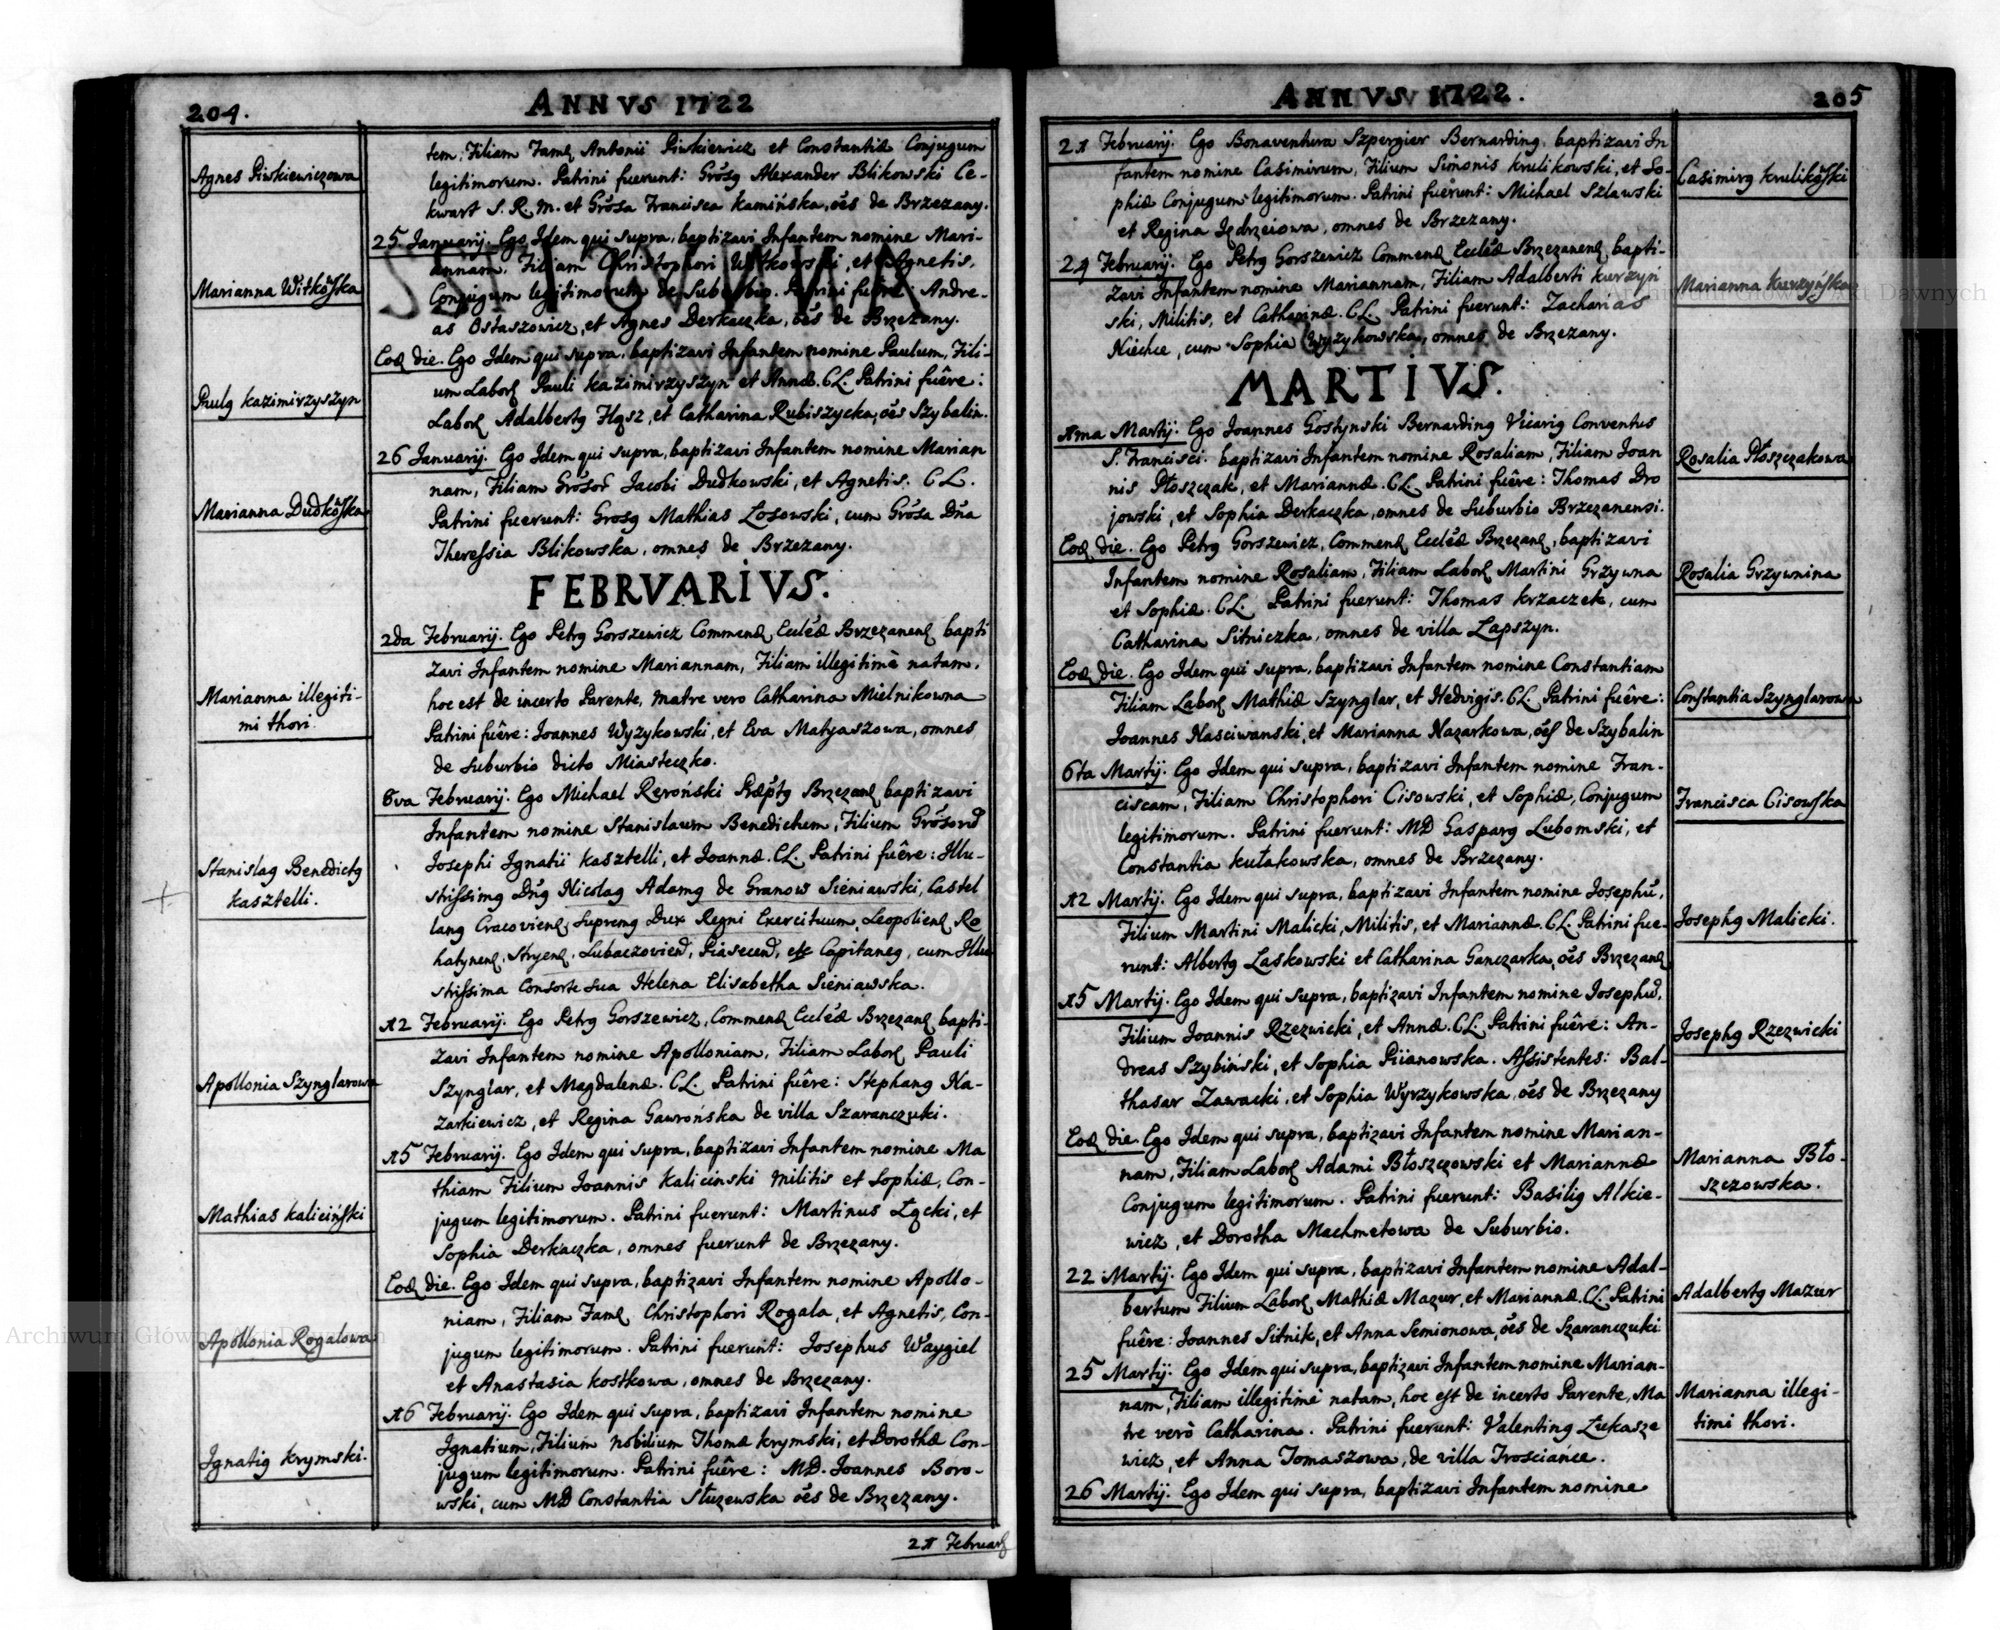 204.
ANNVS 1722
Agnes Piwkiewiczowa
tem, Filiam Fam Antonii Piwkiewicz et Constantiæ Conjugum
legitimorum. Patrini fuerunt: Alexander Blikowski Ce-
kwart S. R. M. et Grosa Francisca Kamińska, oes de Brzezany.
Marianna Witkowska
25 Januarij. Ego Idem qui supra, baptizavi Infantem nomine Mari-
annam, Filiam Christophori Witkowski, et Agnetis,
Conjugum legitimorum de Suburbio. Patrini fuêre: Andre-
as Ostaszowicz, et Agnes Derkaczka, oes de Brzezany.
Paulg Kazimirzyszyn
Eod die. Ego Idem qui supra, baptizavi Infantem nomine Paulum, Fili-
um Labor Pauli Kazimirzyszyn et Annæ. CL. Patrini fuêre:
Labor Adalbertg, et Catharina Rubiszycka, oes Szybalin.
Marianna Dudkowska
26 Januarij. Ego Idem qui supra, baptizavi Infantem nomine Marian
nam, Filiam Jacobi Dudkowski, et Agnetis. CL.
Patrini fuerunt: Grosg Mathias Losowski, cum Grosa Dna
Theressia Blikowska, omnes de Brzezany.
FEBRVARIVS.
Marianna illegiti-
mi thori.
2da Februarij. Ego Petrg Gorszewicz Commend Eccleæ Brzezanen bapti
zavi Infantem nomine Mariannam, Filiam illegitimè natam,
hoc est de incerto Parente, matre vero Catharina Mielnikowna
Patrini fuêre: Joannes Wyzykowski, et Eva Matyaszowa, omnes
de Suburbio dicto Miasteczko.
Stanislag Benedictg
Kasztelli.
6va Februarij. Ego Michael Reroński Præptg Brzezan baptizavi
Infantem nomine Stanislaum Benedictum, Filium
Josephi Ignatii Kasztelli, et Joannæ. CL. Patrini fuêre: Illu-
strissimg Dng Nicolag Adamg de Granow Sieniawski, Castel
lang Cracovien, Supremg Dux Regni Exercituum, Leopolien Ro
hatynen, Stryen, Lubaczovien, Piasecen, etc Capitaneg, cum Illu
strissima Consorte sua Helena Elisabetha Sieniawska.
Apollonia Szynglarowa
12 Februarij. Ego Petrg Gorszewicz, Commend Eccleæ Brzezan bapti-
zavi Infantem nomine Apolloniam, Filiam Labor Pauli
Szynglar, et Magdalenæ. CL. Patrini fuêre: Stephang Na-
zarkiewicz, et Regina Gawrońska de villa Szaranczuki.
Mathias Kaliciński
15 Februarij. Ego Idem qui supra, baptizavi Infantem nomine Ma
thiam Filium Joannis Kalicinski Militis et Sophiæ, Con-
jugum legitimorum. Patrini fuerunt: Martinus Łącki, et
Sophia Derkaczka, omnes fuerunt de Brzezany.
Apollonia Rogalowa
Eod die. Ego Idem qui supra, baptizavi Infantem nomine Apollo-
niam, Filiam Fam Christophori Rogala, et Agnetis, Con-
jugum legitimorum. Patrini fuerunt: Josephus Waygiel
et Anastasia Kostkowa, omnes de Brzezany.
Ignatig Krymski.
16 Februarij. Ego Idem qui supra, baptizavi Infantem nomine
Ignatium, Filium nobilium Thomæ Krymski, et Dorothæ Con-
jugum legitimorum. Patrini fuêre: MD. Joannes Boro-
wski, cum MD Constantia Służewska oes de Brzezany.
21 Februar
ANNVS 1722.
205
21 Februarij. Ego Bonaventura Szpergier Bernarding, baptizavi In
fantem nomine Casimirum, Filium Simonis Krulikowski, et So-
phiæ Conjugum legitimorum. Patrini fuerunt: Michael Szlawski
et Regina Jędrzeiowa, omnes de Brzezany.
Casimirg Krulikowski
24 Februarij. Ego Petrg Gorszewicz Commend Eccleæ Brzezanen bapti-
zavi Infantem nomine Mariannam, Filiam Adalberti Kurzyń
ski, Militis, et Catharinæ. CL. Patrini fuerunt: Zacharias
Niechce, cum Sophia Wyzykowska, omnes de Brzezany.
Marianna Kurzyńska
MARTIVS.
1ma Martij. Ego Joannes Gostynski Bernarding Vicarig Conventus
S. Francisci. baptizavi Infantem nomine Rosaliam, Filiam Joan
nis Płoszczak, et Mariannæ. CL Patrini fuêre: Thomas Dro
jowski, et Sophia Derkaczka, omnes de Suburbio Brzezanensi.
Rosalia Płoszczakowa
Eod die. Ego Petrg Gorszewicz, Commend Eccleæ Brzezan, baptizavi
Infantem nomine Rosaliam, Filiam Labor Martini Grzywna
et Sophiæ. CL. Patrini fuerunt: Thomas Krzaczek, cum
Catharina Sitniczka, omnes de villa Lapszyn.
Rosalia Grzywnina
Eod die. Ego Idem qui supra, baptizavi Infantem nomine Constantiam
Filiam Labor Mathiæ Szynglar, et Hedvigis. CL. Patrini fuêre:
Joannes Nasciwanski, et Marianna Nazarkowa, oes de Szybalin
Constantia Szynglarowa
6ta Martij. Ego Idem qui supra, baptizavi Infantem nomine Fran-
ciscam, Filiam Christophori Cisowski, et Sophiæ, Conjugum
legitimorum. Patrini fuerunt: MD Gasparg Lubomski, et
Constantia Kułakowska, omnes de Brzezany.
Francisca Cisowska
12 Martij. Ego Idem qui supra, baptizavi Infantem nomine Josephũ,
Filium Martini Malicki, Militis, et Mariannæ. CL. Patrini fue-
runt: Albertg Laskowski et Catharina Ganczarka, oes Brzezan
Josephg Malicki.
15 Martij. Ego Idem qui supra, baptizavi Infantem nomine Josephũ,
Filium Joannis Rzezwicki, et Annæ. CL. Patrini fuêre: An-
dreas Szybiński, et Sophia Piianowska. Assistentes: Bal-
thasar Zawacki, et Sophia Wyrzykowska, oes de Brzezany
Josephg Rzezwicki
Eod die. Ego Idem qui supra, baptizavi Infantem nomine Marian-
nam, Filiam Labor Adami Błoszczowski et Mariannæ
Conjugum legitimorum. Patrini fuerunt: Basilig Alkie-
wicz, et Dorotha Machmetowa de Suburbio.
Marianna Bło-
szczowska.
22 Martij. Ego Idem qui supra, baptizavi Infantem nomine Adal-
bertum Filium Labor Mathiæ Mazur, et Mariannæ. CL. Patrini
fuêre: Joannes Sitnik, et Anna Semionowa, oes de Szaranczuki
Adalbertg Mazur
25 Martij. Ego Idem qui supra, baptizavi Infantem nomine Marian-
nam, Filiam illegitimè natam, hoc est de incerto Parente, Ma
tre verò Catharina. Patrini fuerunt: Valenting Łukasze
wicz, et Anna Tomaszowa, de villa Trosciańce.
Marianna illegi-
timi thori.
26 Martij. Ego Idem qui supra, baptizavi Infantem nomine